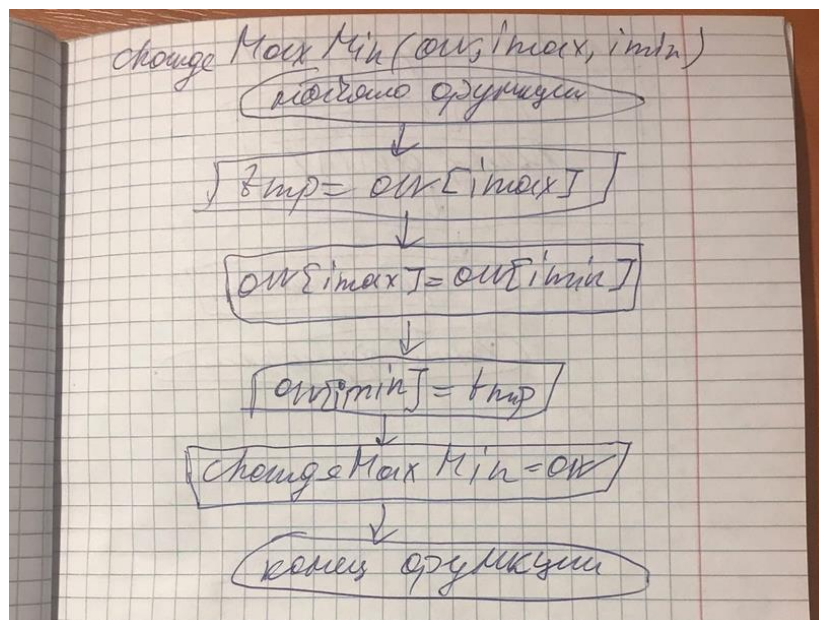 changeMaxMin(arr, imax, imin)
начало функции
tmp = arr[imax]
arr[imax] = arr[imin]
arr[imin] = tmp
changeMaxMin = arr
конец функции